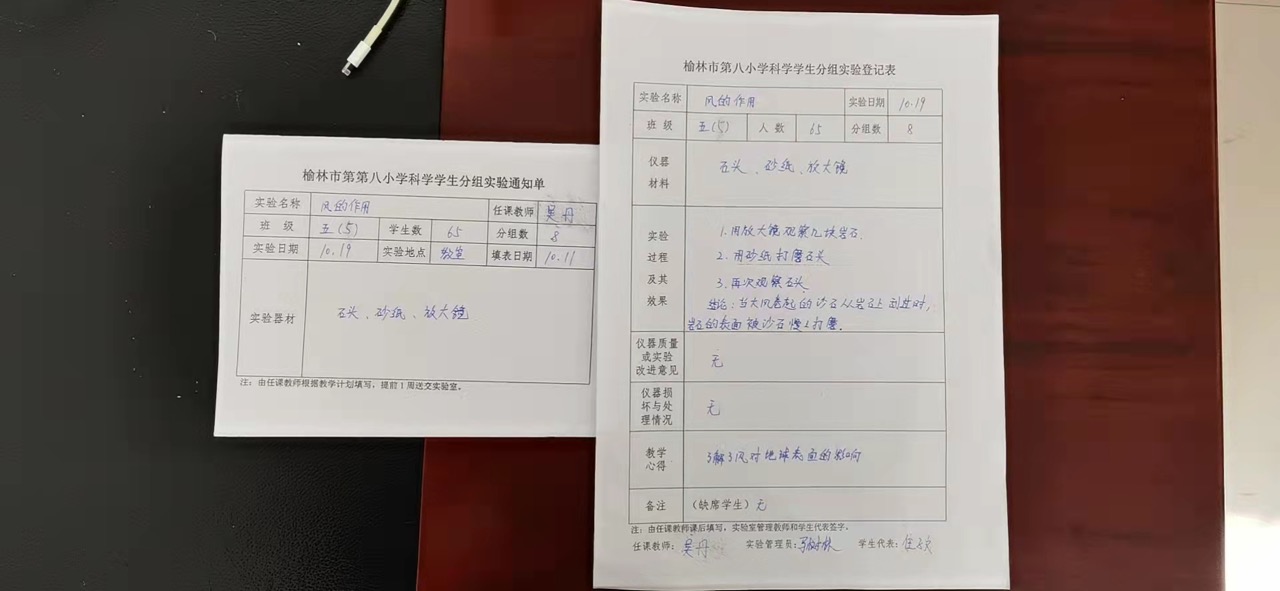 榆林市第第八小学科学学生分组实验通知单
实验名称 风的作用 任课教师 吴丹
班 级 五(5) 学生数 65 分组数 8
实验日期 10.19 实验地点 教室 填表日期 10.11
实验器材 石头、砂纸、放大镜
注：由任课教师根据教学计划填写，提前1周送交实验室。
榆林市第八小学科学学生分组实验登记表
实验名称 风的作用 实验日期 10.19
班 级 五(5) 人 数 65 分组数 8
仪器
材料
石头、砂纸、放大镜
实验
过程
及其
效果
1.用放大镜观察几块岩石.
2.用砂纸打磨石头
3.再次观察石头
结论：当大风卷起的沙石从岩石上刮过时，
岩石的表面被沙石慢上打磨.
仪器质量
或实验
改进意见
无
仪器损
坏与处
理情况
无
教学
心得
了解了风对地球表面的影响
备注 （缺席学生）无
注：由任课教师课后填写，实验室管理教师和学生代表签字。
任课教师：吴丹 实验管理员： 学生代表：